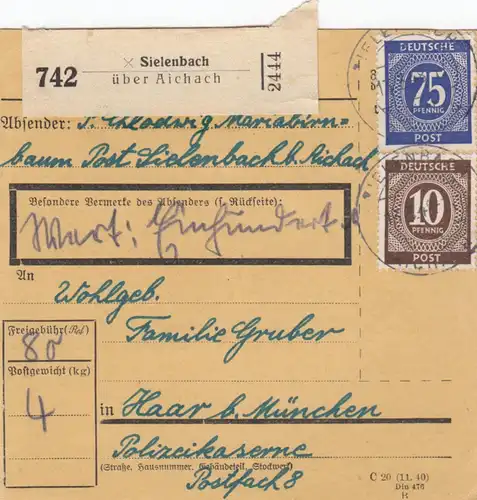 742
× Sielenbach
über Aichach
2444
DEUTSCHE
75
PFENNIG
POST
Absender: P. Chlodwig Mariabirn=
baum Post Sielenbach b. Aichach
Besondere Vermerke des Absenders (s. Rückseite):
Wert: Einhundert
DEUTSCHE
10
PFENNIG
POST
An
Wohlgeb.
Familie Gruber
Freigebühr (Rpf)
80
Postgewicht (kg)
4
in Haar b. München
Polizeikaserne
(Straße, Hausnummer, Gebäudeteil, Stockwerk)
Postfach 8
C 20 (11. 40)
Din 476